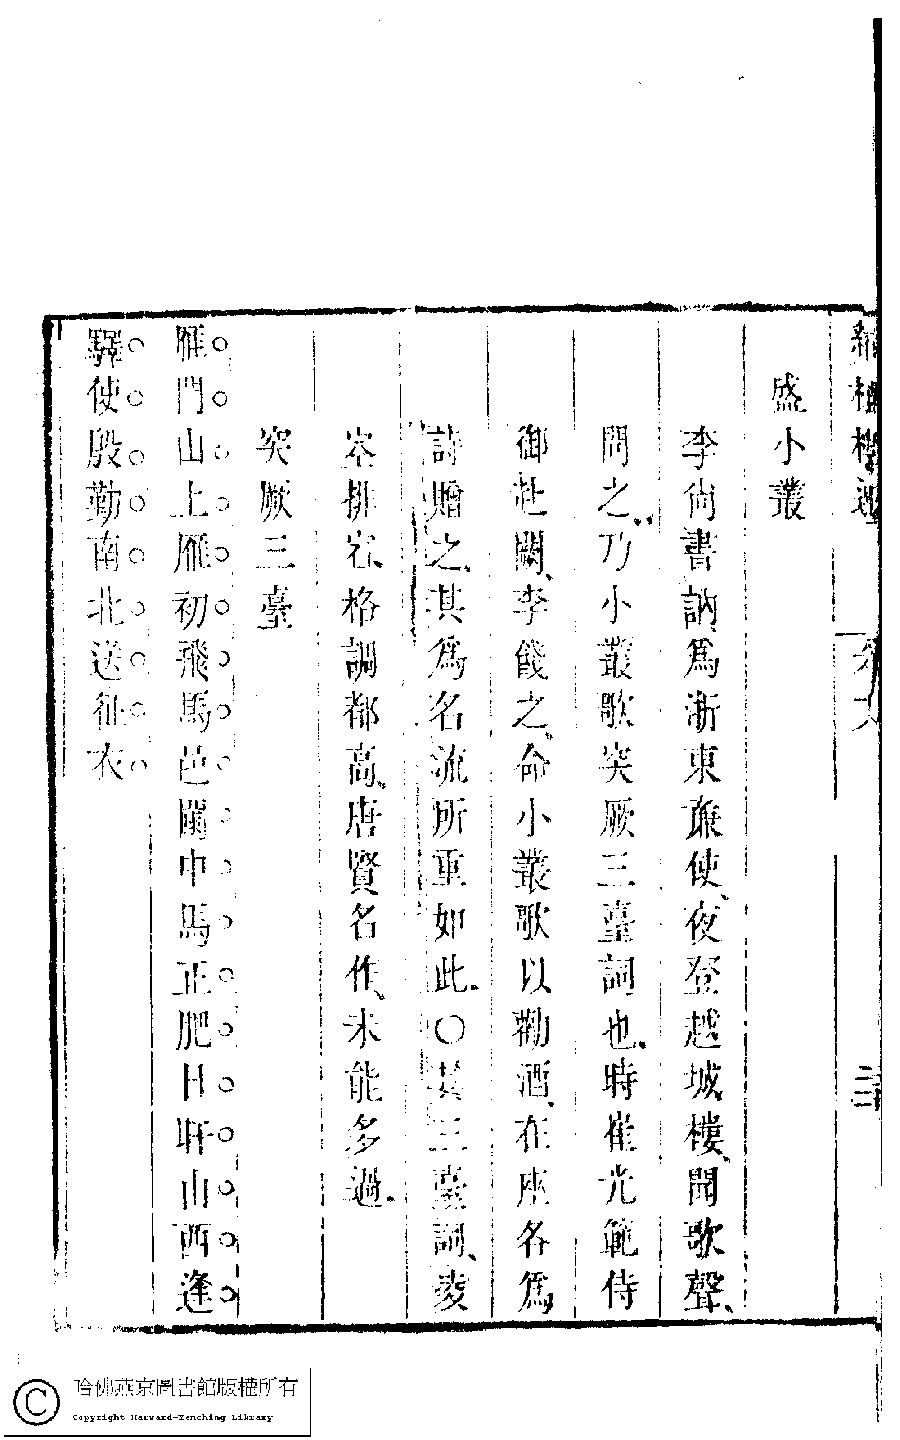 盛小叢
李尚書訥爲浙東廉使、夜登越城樓、聞歌聲、
問之、乃小叢歌突厥三臺詞也、時崔光範侍
御赴闕、李餞之、命小叢歌以勸酒、在座各爲
詩贈之、其爲名流所重如此。〇其三臺詞、夌
空排宕、格調都高、唐賢名作、未能多過。
突厥三臺
雁門山上雁初飛馬邑闌中馬正肥日旰山西逢
驛使殷勤南北送征衣
哈佛燕京圖書館版權所有
Copyright Harvard-Yenching Library